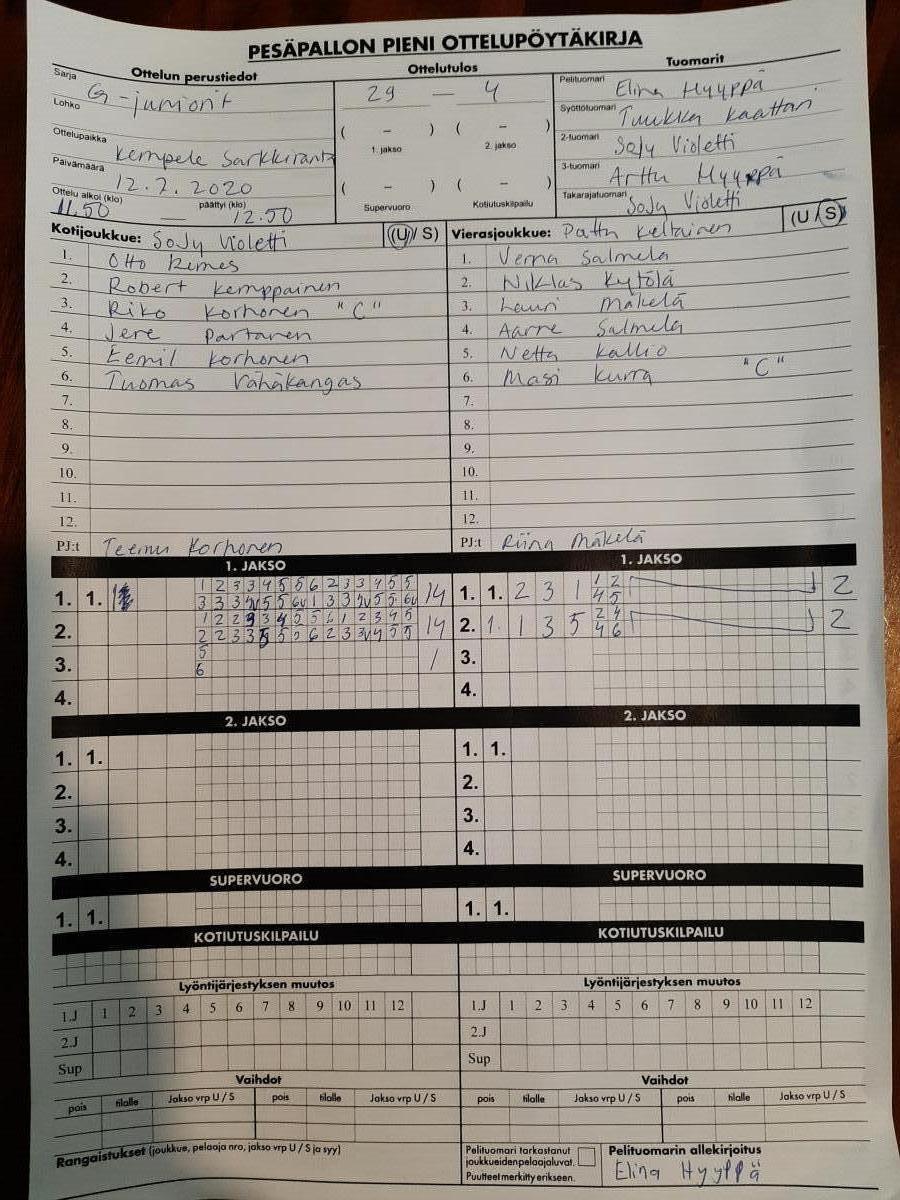 PESÄPALLON PIENI OTTELUPÖYTÄKIRJA
Ottelun perustiedot
Sarja G-juniorit
Lohko
Ottelupaikka Kempele Sarkkiranta
Päivämäärä 12.7.2020
Ottelu alkoi (klo) päättyi (klo)
11.50 — 12.50
Ottelutulos
29 — 4
( - ) ( - )
1. jakso 2. jakso
( - ) ( - )
Supervuoro Kotiutuskilpailu
Tuomarit
Pelituomari Elina Hyyppä
Syöttötuomari Tuukka Kaattari
2-tuomari SoJy Violetti
3-tuomari Arttu Hyyppä
Takarajatuomari SoJy Violetti
Kotijoukkue: SoJy Violetti (U/S)
1. Otto Remes
2. Robert Kemppainen
3. Riko Korhonen "C"
4. Jere Partanen
5. Eemil Korhonen
6. Tuomas Vähäkangas
7.
8.
9.
10.
11.
12.
PJ:t Teemu Korhonen
Vierasjoukkue: Pattu Keltainen (U/S)
1. Verna Salmela
2. Niklas Kytölä
3. Lauri Mäkelä
4. Aarne Salmela
5. Netta Kallio
6. Masi Kurra "C"
7.
8.
9.
10.
11.
12.
PJ:t Riina Mäkelä
1. JAKSO
1. 1. 1 2 3 3 4 5 5 6 2 3 3 4 5 5 14
2. 1 2 2 3 3 4 5 5 6 1 2 3 4 5 14
3. 5 1
6
4.
1. JAKSO
1. 1. 2 3 1 1 2 2
4 5
2. 1. 1 3 5 2 4 2
4 6
3.
4.
2. JAKSO
1. 1.
2.
3.
4.
2. JAKSO
1. 1.
2.
3.
4.
SUPERVUORO
1. 1.
SUPERVUORO
1. 1.
KOTIUTUSKILPAILU
KOTIUTUSKILPAILU
Lyöntijärjestyksen muutos
1.J 1 2 3 4 5 6 7 8 9 10 11 12
2.J
Sup
Lyöntijärjestyksen muutos
1.J 1 2 3 4 5 6 7 8 9 10 11 12
2.J
Sup
Vaihdot
pois tilalle Jakso vrp U / S pois tilalle Jakso vrp U / S
Vaihdot
pois tilalle Jakso vrp U / S pois tilalle Jakso vrp U / S
Rangaistukset (joukkue, pelaaja nro, jakso vrp U / S ja syy)
Pelituomari tarkastanut
joukkueiden pelaajaluvat.
Puutteet merkitty erikseen.
Pelituomarin allekirjoitus
Elina Hyyppä